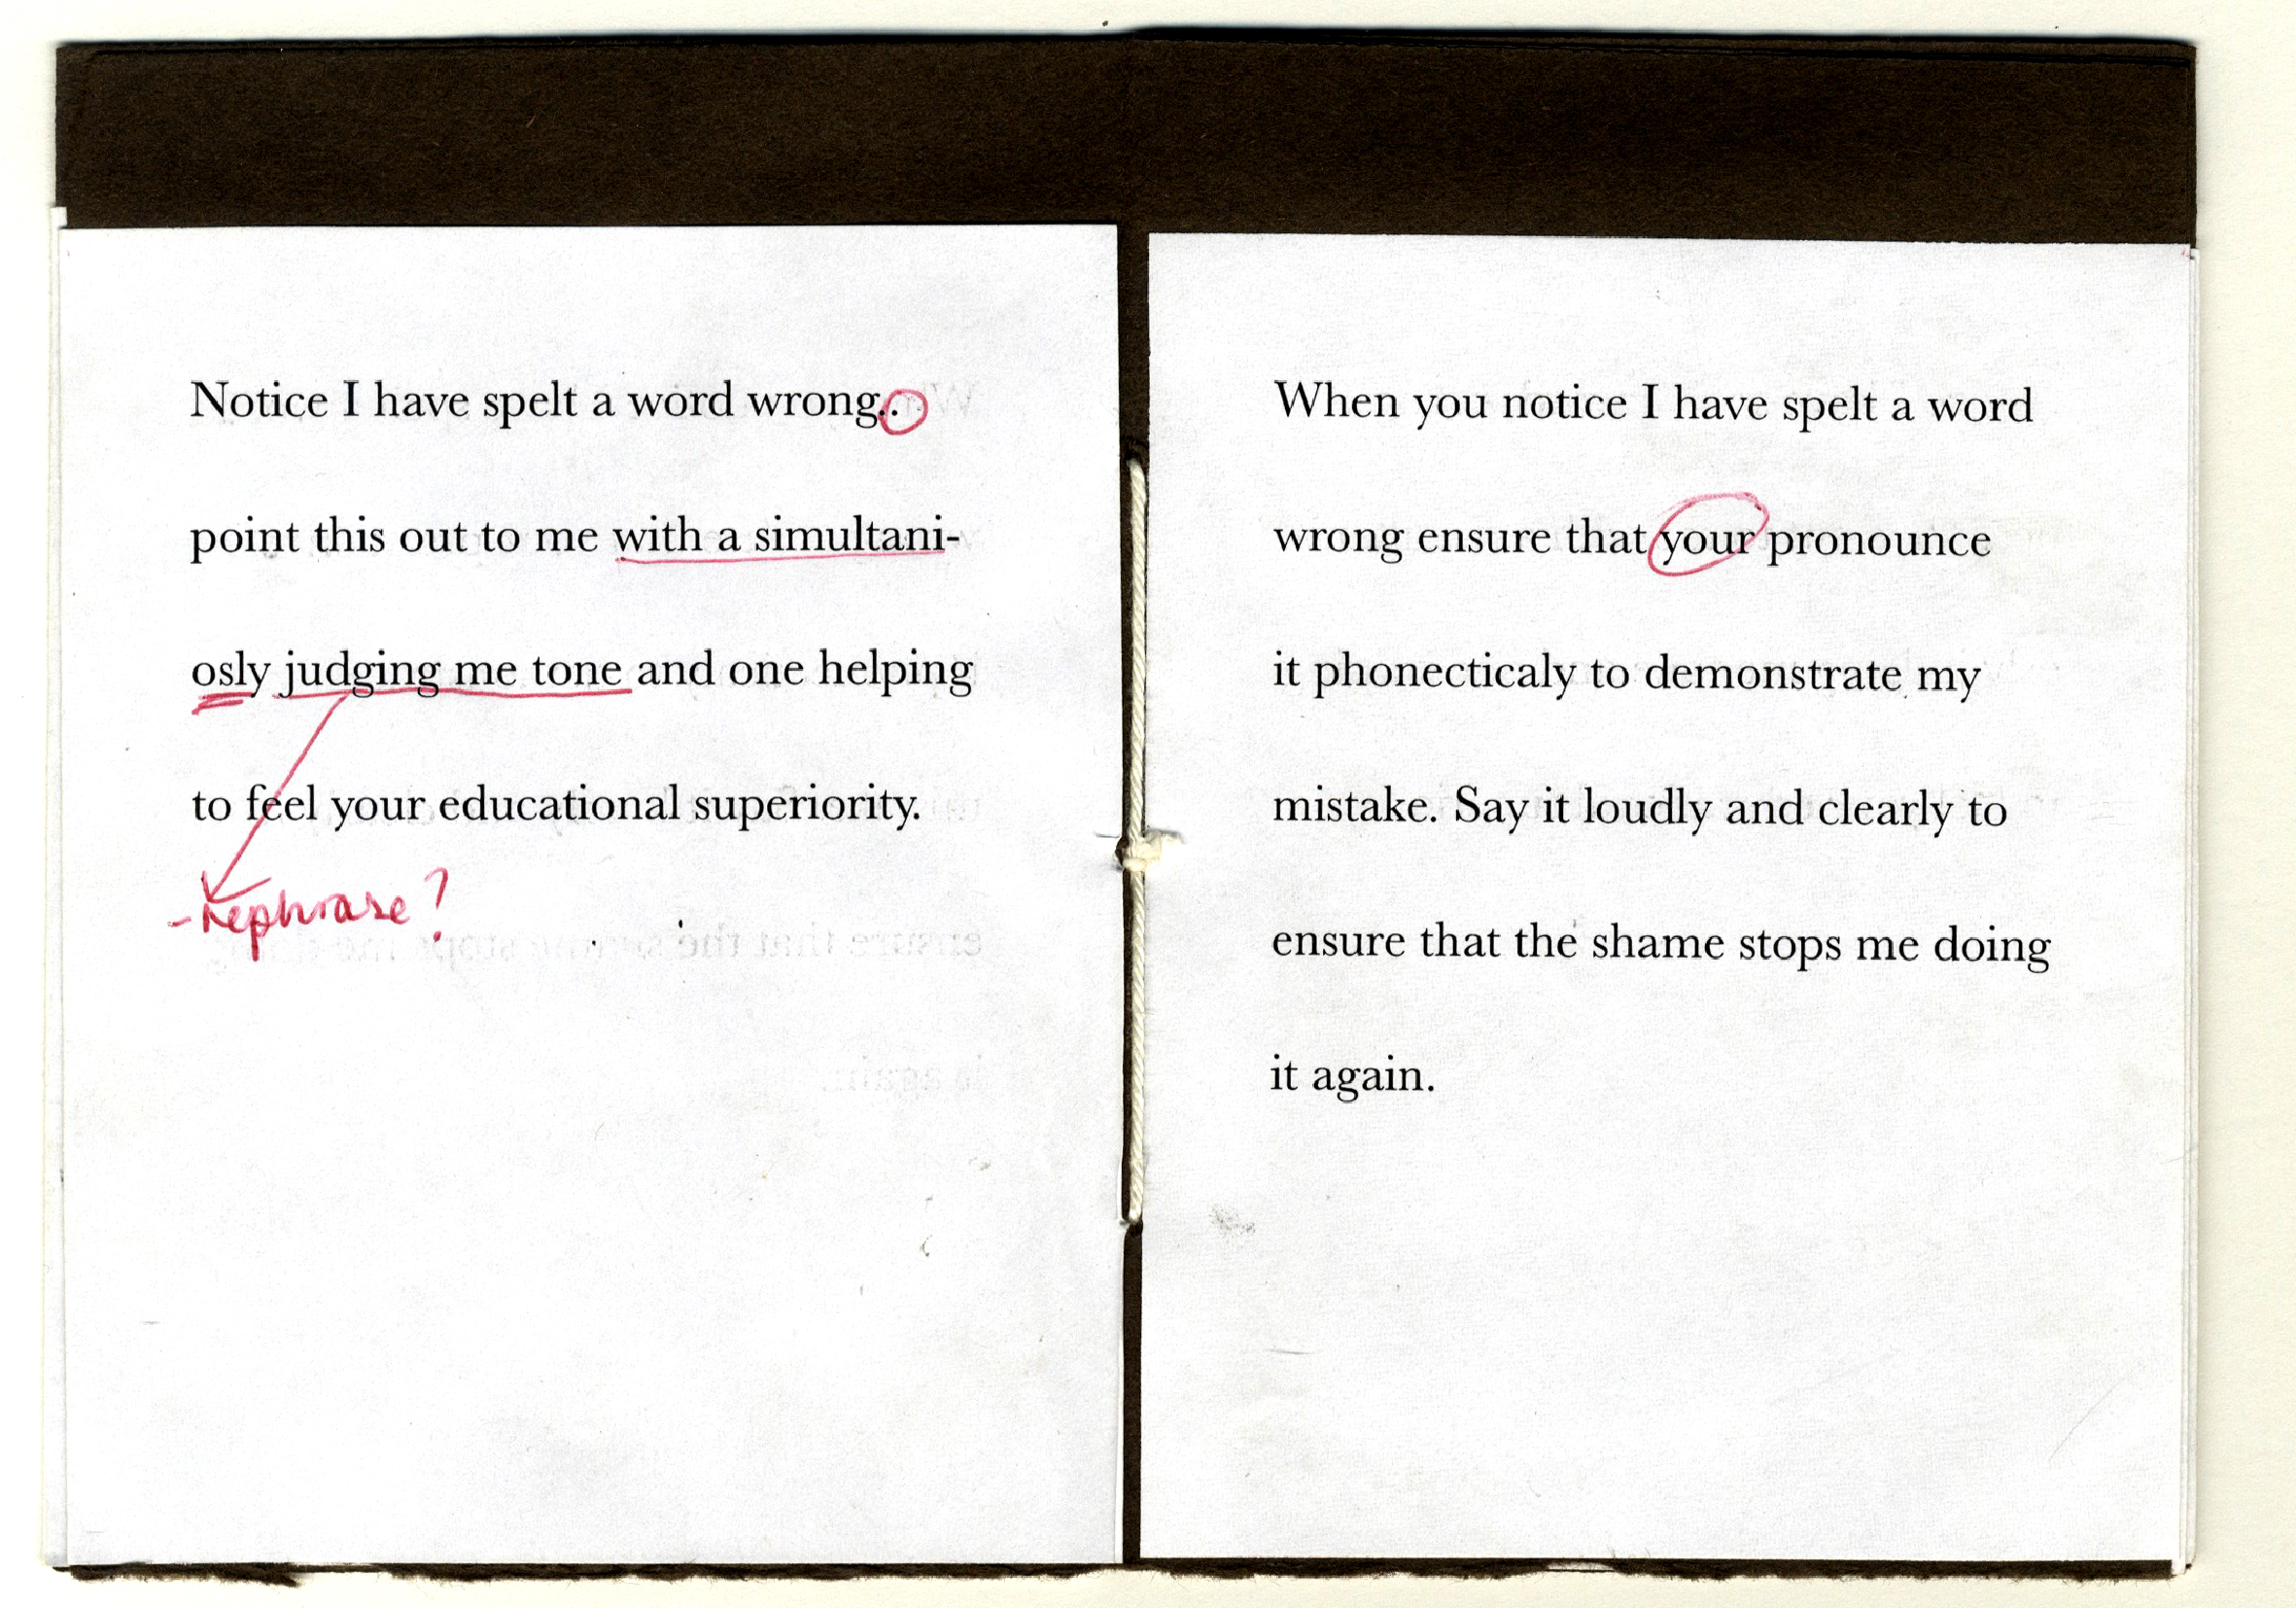 Notice I have spelt a word wrong..
point this out to me with a simultani-
osly judging me tone and one helping
to feel your educational superiority.
-Rephrase?
When you notice I have spelt a word
wrong ensure that your pronounce
it phonecticaly to demonstrate my
mistake. Say it loudly and clearly to
ensure that the shame stops me doing
it again.